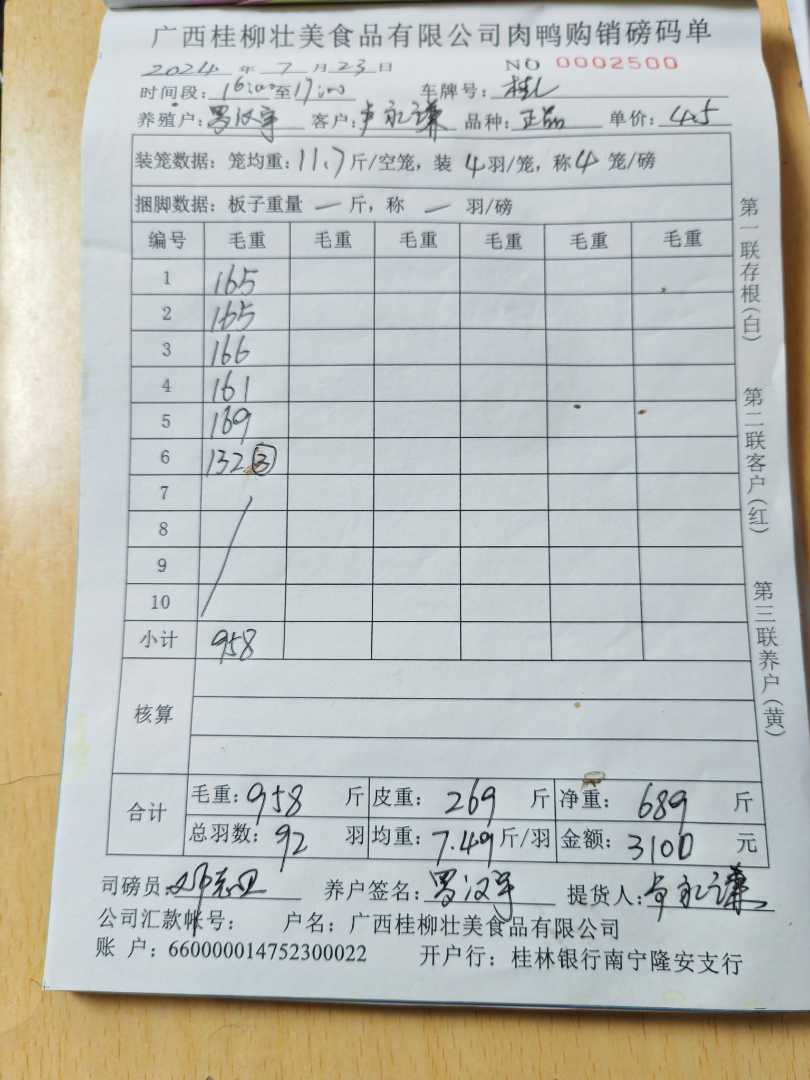 广西桂柳壮美食品有限公司肉鸭购销磅码单
2024 年 7 月 23 日 NO 0002500
时间段: 16:00 至 17:00 车牌号: 桂
养殖户: 罗汉宇 客户: 卢永谦 品种: 正品 单价: 4.5
装笼数据: 笼均重: 11.7 斤/空笼, 装 4 羽/笼, 称 4 笼/磅
捆脚数据: 板子重量 — 斤, 称 — 羽/磅
编号 毛重 毛重 毛重 毛重 毛重 毛重
1 165
2 165
3 166
4 161
5 169
6 132 ③
7
8
9
10
小计 958
核算
合计 毛重: 958 斤 皮重: 269 斤 净重: 689 斤
总羽数: 92 羽 均重: 7.49 斤/羽 金额: 3100 元
司磅员: 养户签名: 罗汉宇 提货人: 卢永谦
公司汇款帐号: 户名: 广西桂柳壮美食品有限公司
账 户: 660000014752300022 开户行: 桂林银行南宁隆安支行
第一联存根(白)
第二联客户(红)
第三联养户(黄)